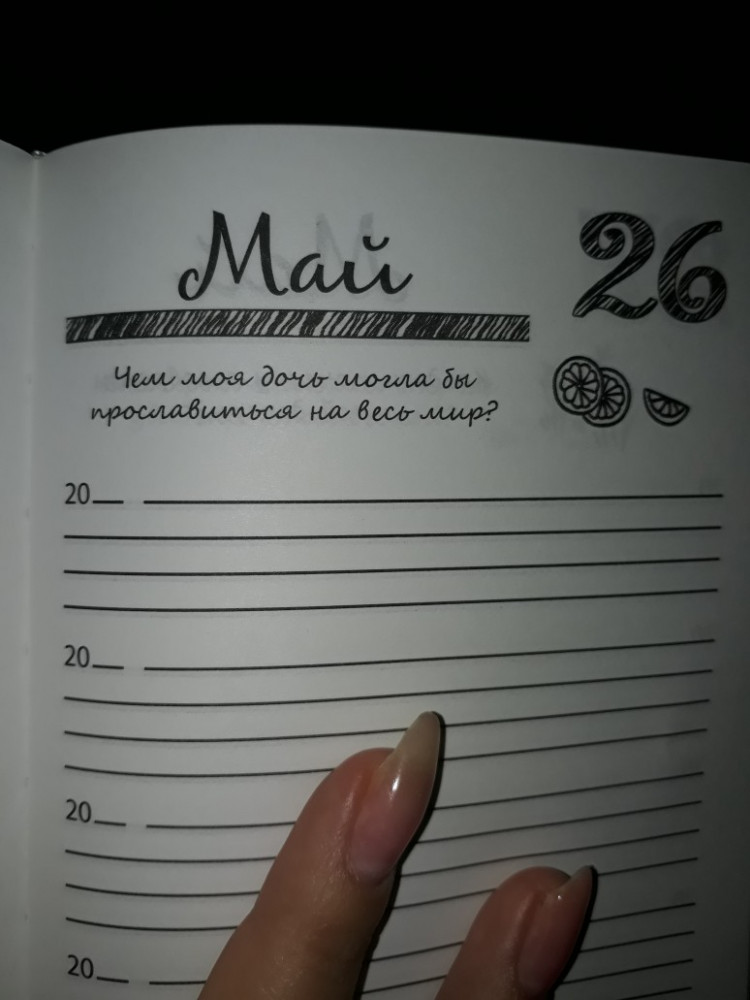 Май
26
Чем моя дочь могла бы
прославиться на весь мир?
20__
20__
20__
20__